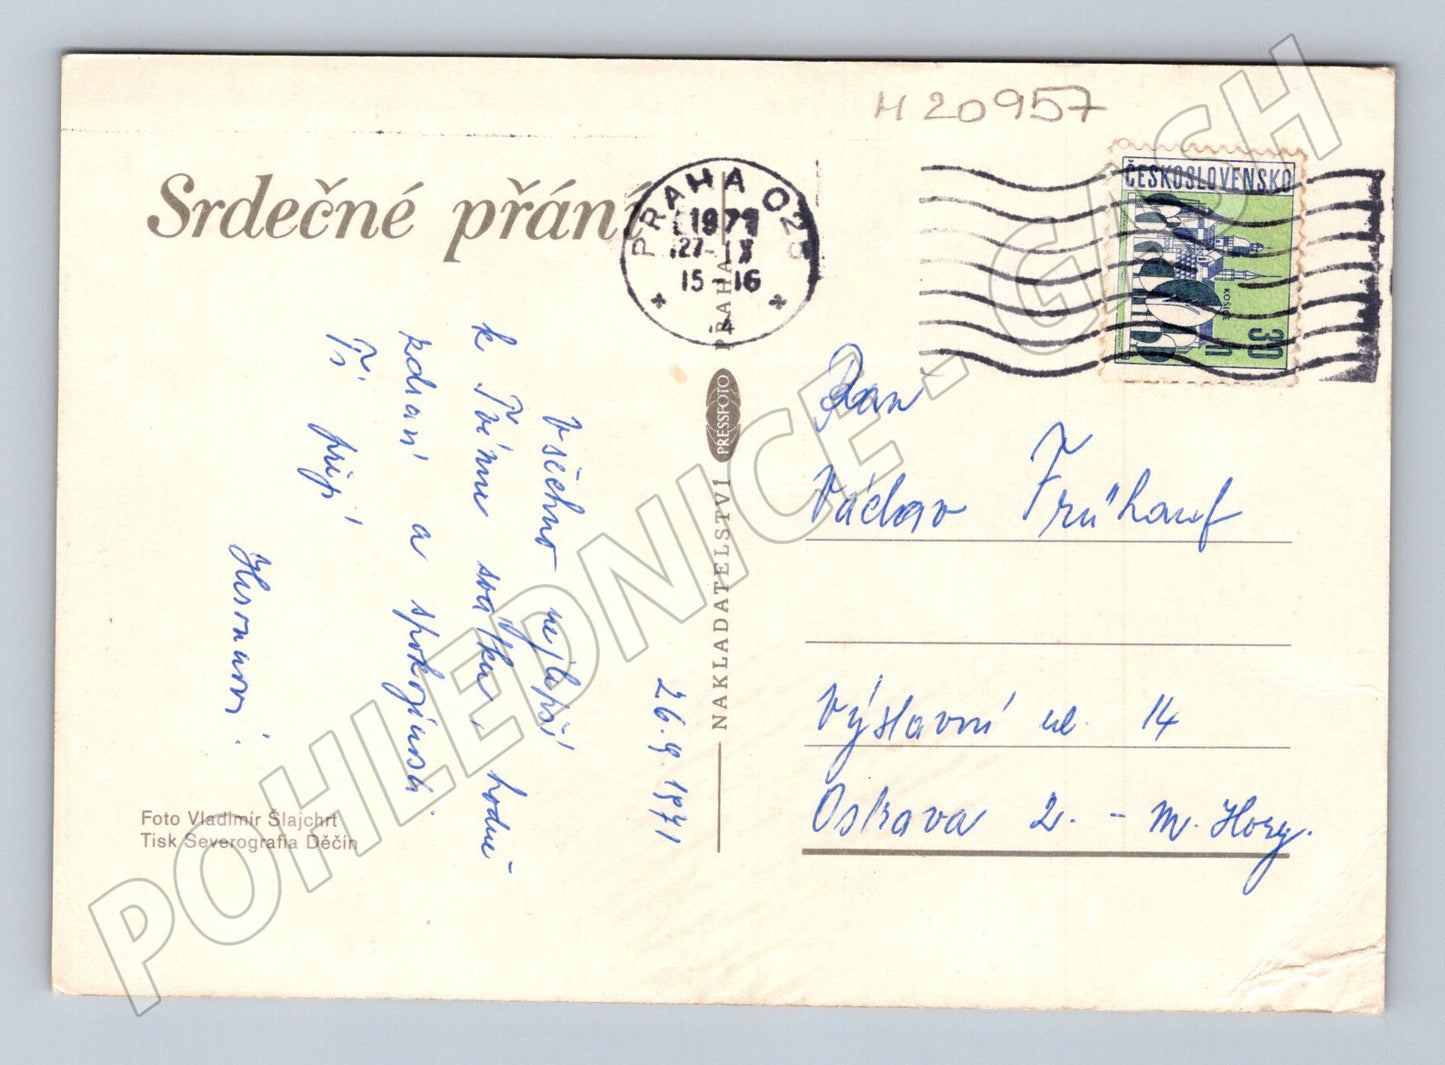 H 20957
Srdečné přání
PRAHA 025
1971
27.-IX
15-16
4
ČESKOSLOVENSKO
KOŠICE
30
h
26. 9. 1971
Všechno nejlepší
k Tvému svátku, hodně
zdraví a spokojenosti
Ti přejí
Pan
Václav Frühauf
Výstavní ul. 14
Ostrava 2. - M. Hory.
NAKLADATELSTVÍ PRESSFOTO PRAHA
Foto Vladimír Šlajchrt
Tisk Severografia Děčín
POHLEDNICE-GASH